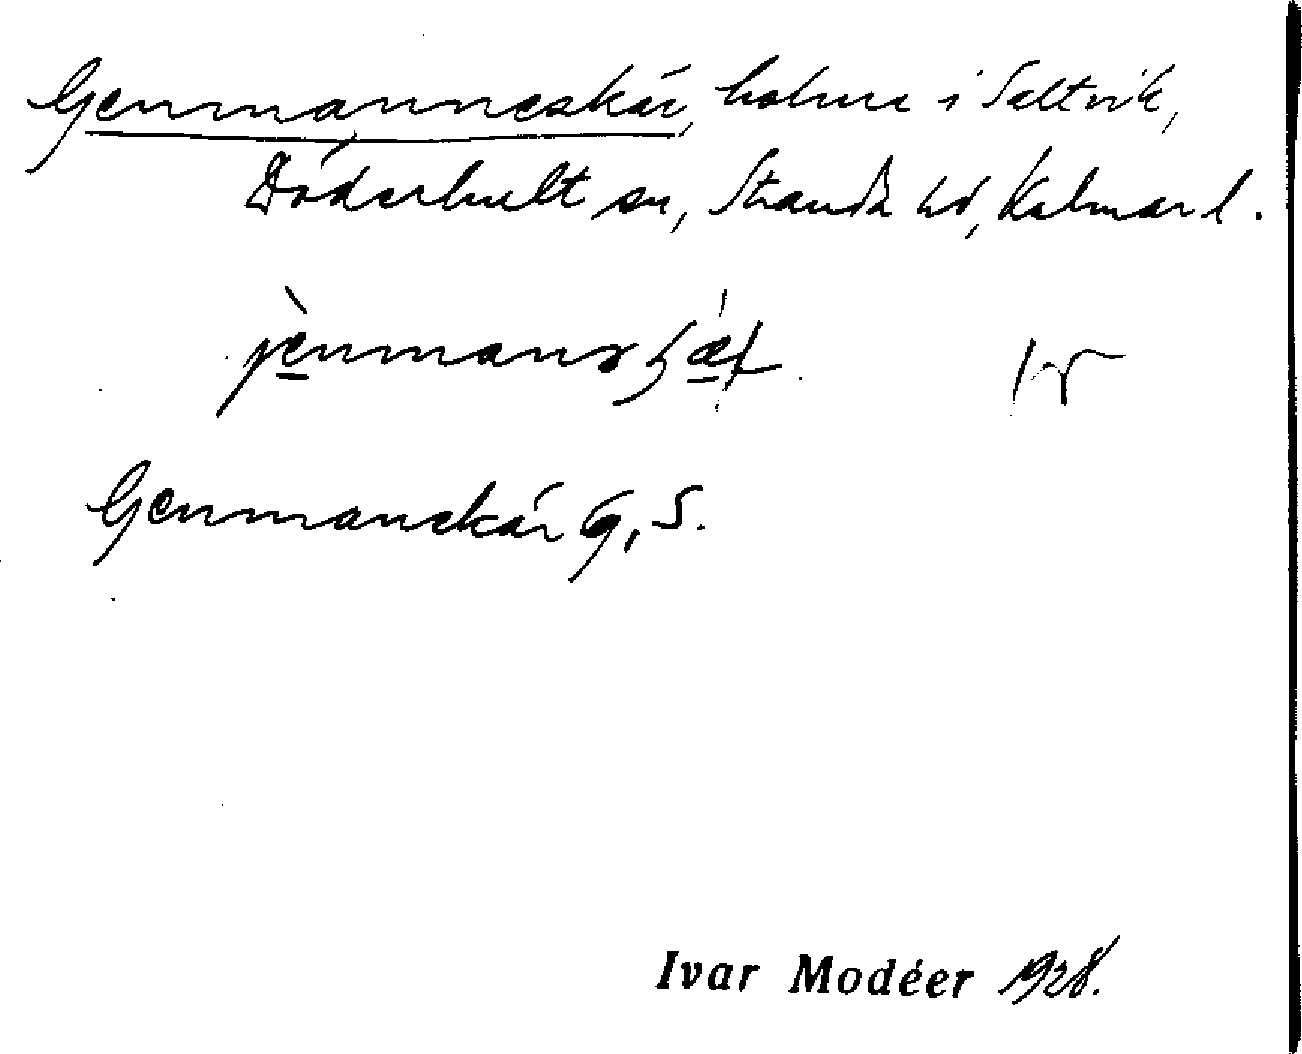 Genmanneskär, holme i Saltvik,
Döderhult sn, Stranda hd, Kalmar l.
Genmanskär G, S.
Ivar Modéer 1928.